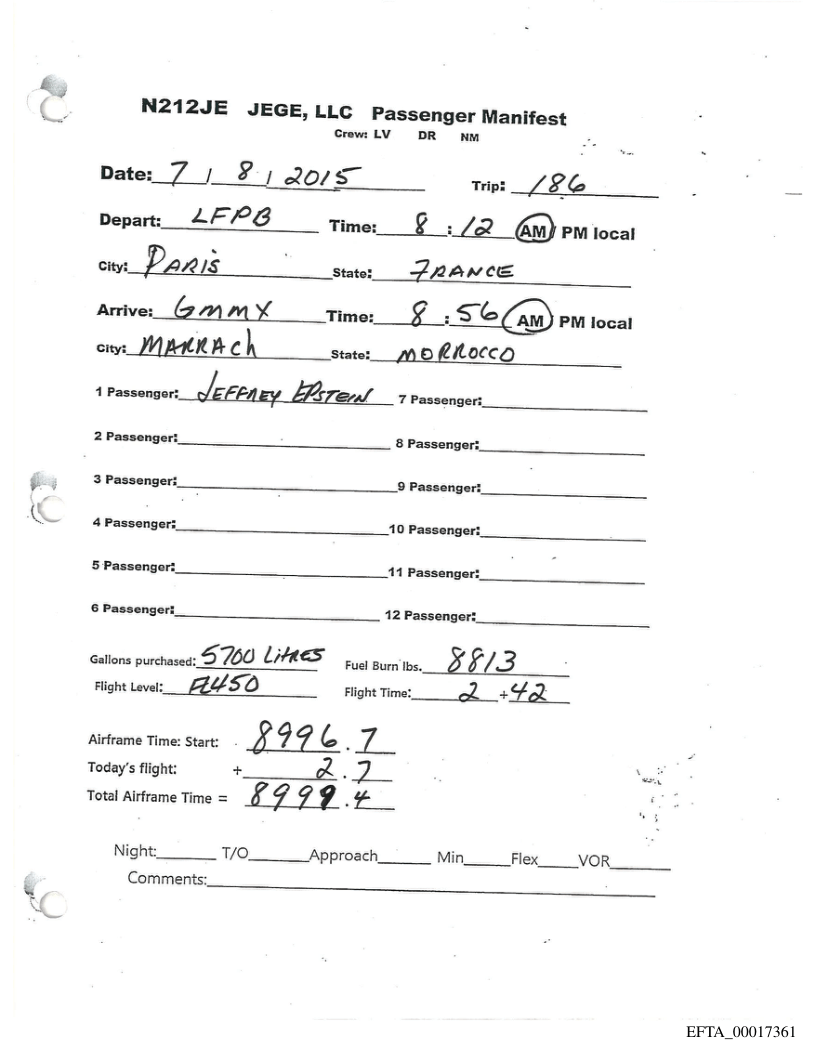 N212JE JEGE, LLC Passenger Manifest
Crew: LV DR NM
Date: 7 / 8 / 2015 Trip: 186
Depart: LFPB Time: 8 : 12 AM PM local
City: PARIS State: FRANCE
Arrive: GMMX Time: 8 : 56 AM PM local
City: MARRACh State: MORROCCO
1 Passenger: JEFFREY EPSTEIN 7 Passenger:
2 Passenger: 8 Passenger:
3 Passenger: 9 Passenger:
4 Passenger: 10 Passenger:
5 Passenger: 11 Passenger:
6 Passenger: 12 Passenger:
Gallons purchased: 5700 LITRES Fuel Burn lbs. 8813
Flight Level: FL450 Flight Time: 2 + 42
Airframe Time: Start: 8996.7
Today's flight: + 2.7
Total Airframe Time = 8999.4
Night: T/O Approach Min Flex VOR
Comments:
EFTA_00017361